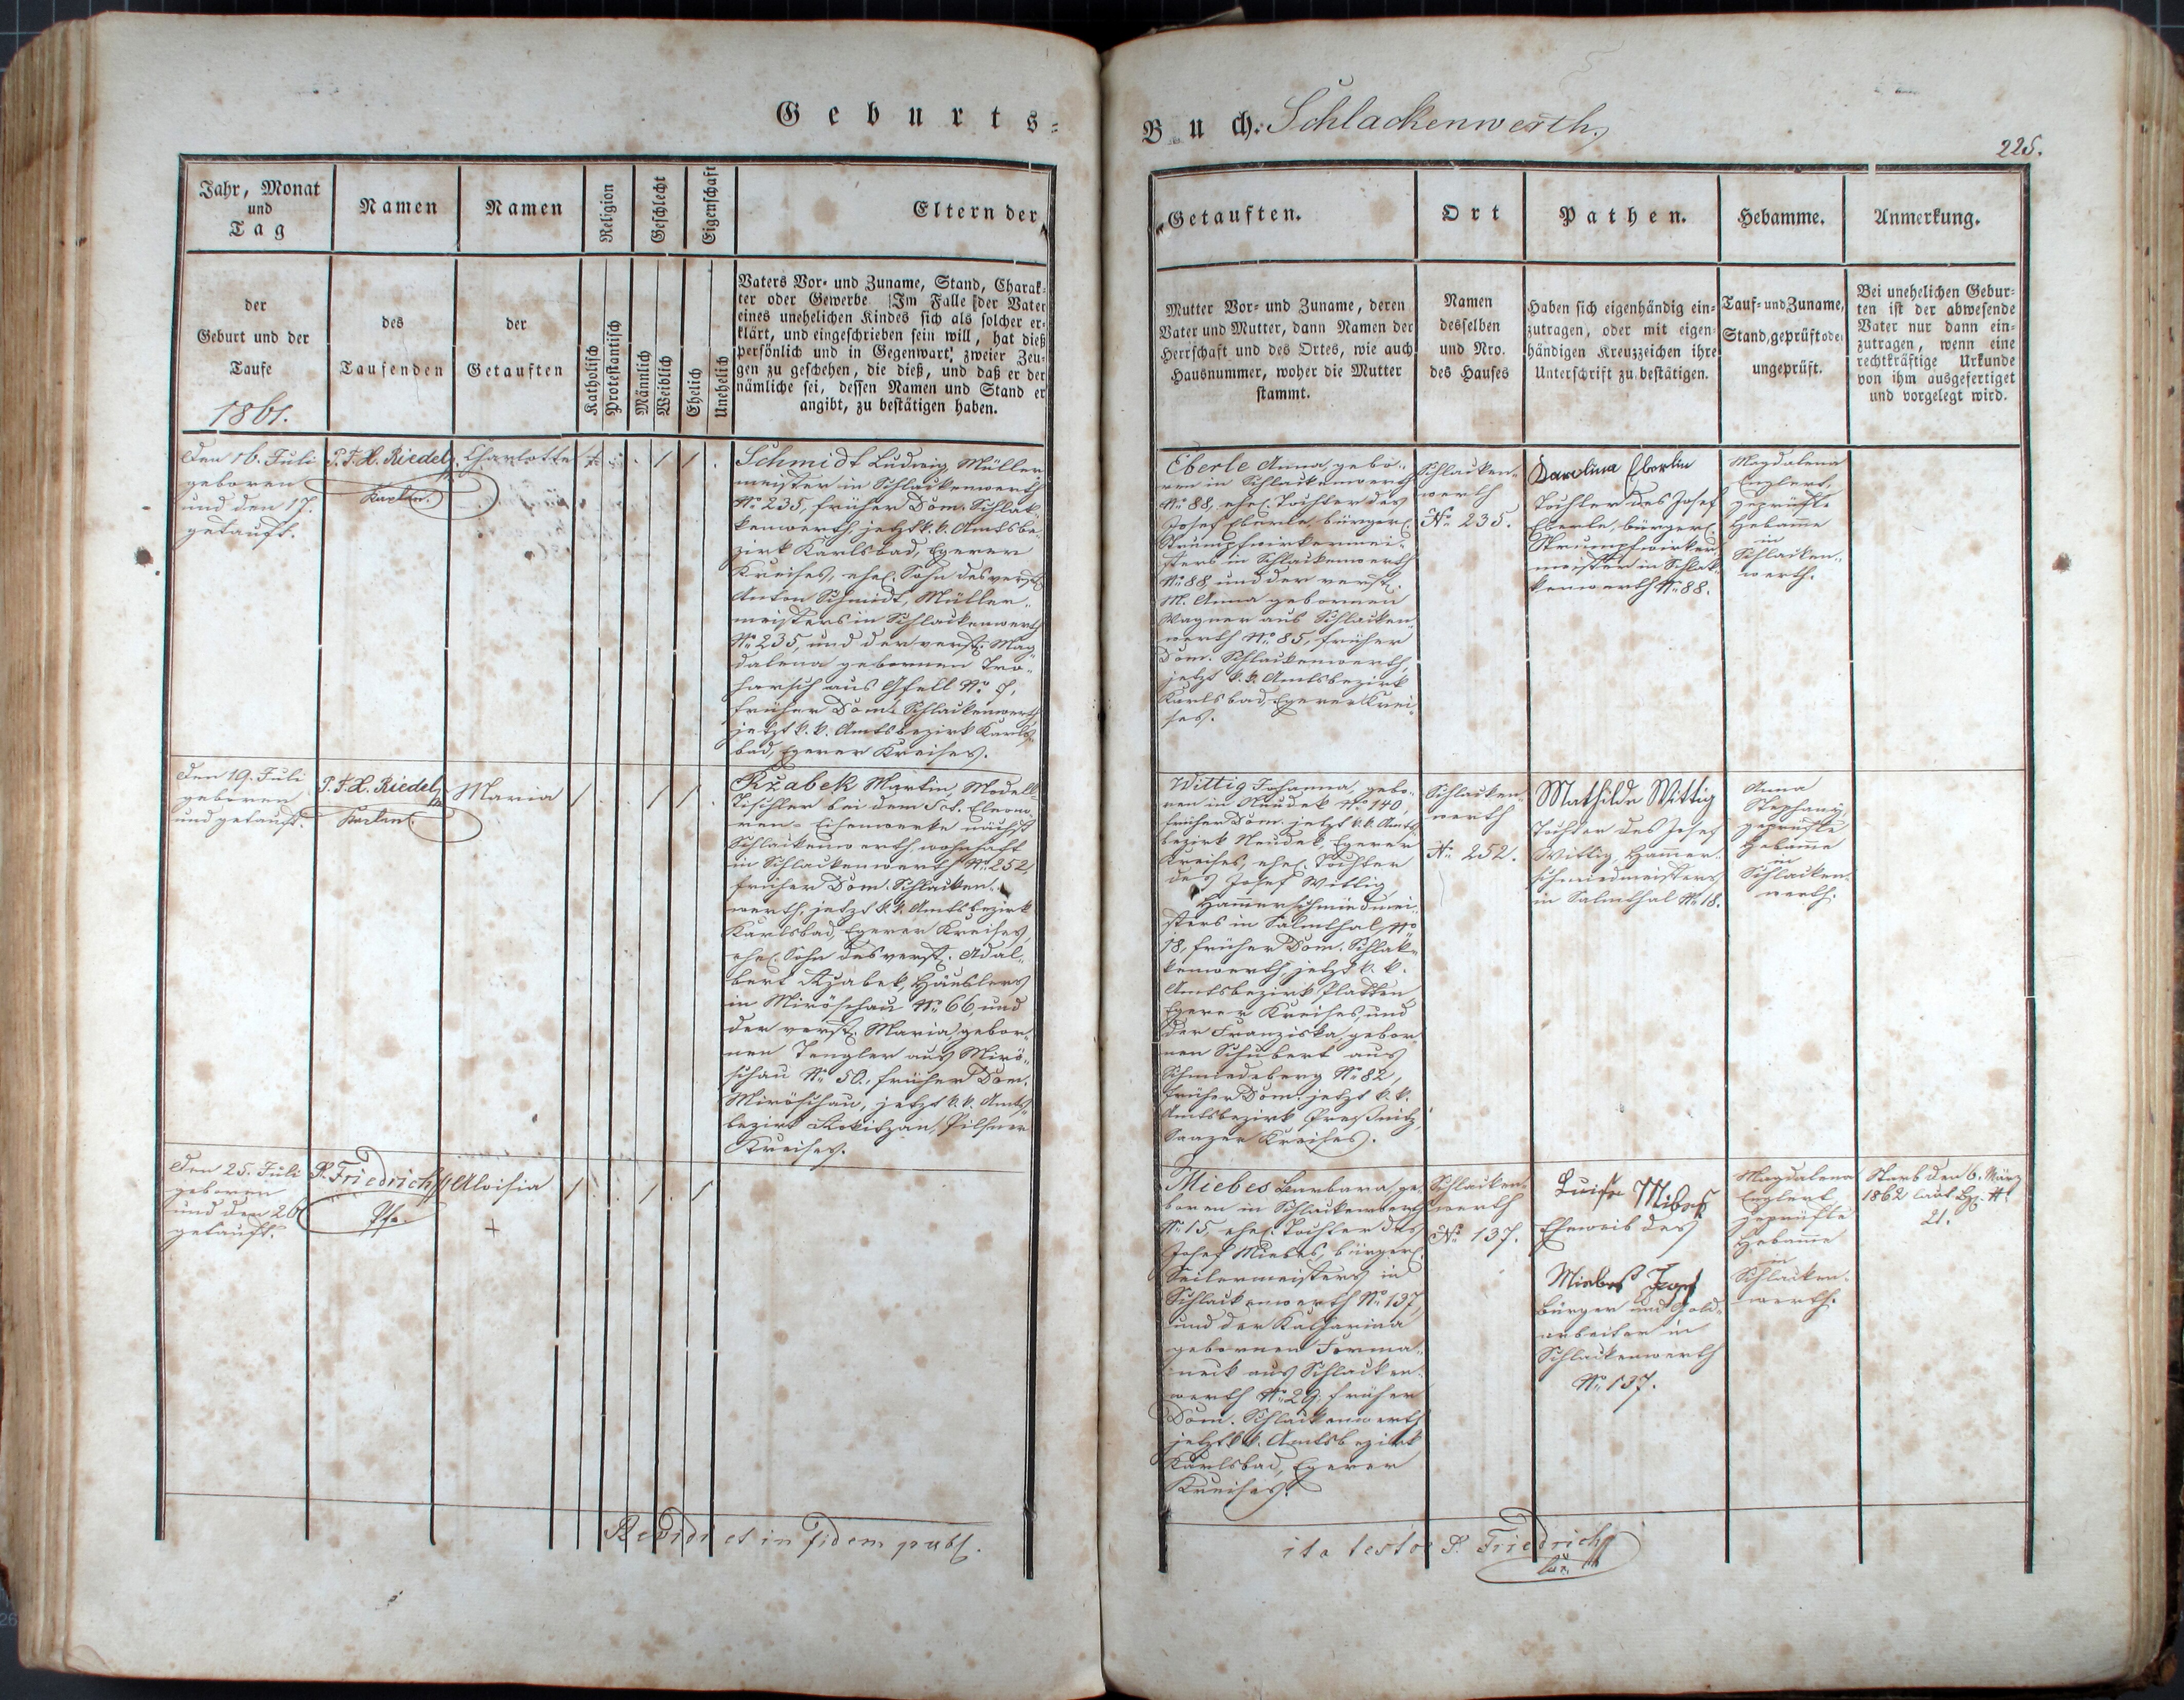 Geburts-
Buch. Schlackenwerth.
225.
Jahr, Monat
und
Tag
der
Geburt und der
Taufe
1861.
Namen
des
Taufenden
Namen
der
Getauften
Religion
Katholisch
Protestantisch
Geschlecht
Männlich
Weiblich
Eigenschaft
Ehelich
Unehelich
Eltern der
Vaters Vor- und Zuname, Stand, Charak-
ter oder Gewerbe Im Falle der Vater
eines unehelichen Kindes sich als solcher er-
klärt, und eingeschrieben sein will, hat dieß
persönlich und in Gegenwart zweier Zeu-
gen zu geschehen, die dieß, und daß er der
nämliche sei, dessen Namen und Stand er
angibt, zu bestätigen haben.
Getauften.
Mutter Vor- und Zuname, deren
Vater und Mutter, dann Namen der
Herrschaft und des Ortes, wie auch
Hausnummer, woher die Mutter
stammt.
Ort
Namen
desselben
und Nro.
des Hauses
Pathen.
Haben sich eigenhändig ein-
zutragen, oder mit eigen-
händigen Kreuzzeichen ihre
Unterschrift zu bestätigen.
Hebamme.
Tauf- und Zuname,
Stand, geprüft oder
ungeprüft.
Anmerkung.
Bei unehelichen Gebur-
ten ist der abwesende
Vater nur dann ein-
zutragen, wenn eine
rechtkräftige Urkunde
von ihm ausgefertiget
und vorgelegt wird.
Den 16. Juli
geboren
und den 17.
getauft.
P. F. X. Riedel
Kaplan.
Charlotte
Schmidt Ludwig Müller-
meister in Schlackenwerth
No 235, früher Dom. Schlak-
kenwerth, jetzt k. k. Amtsbe-
zirk Karlsbad, Egerer
Kreises, ehel. Sohn des verst.
Anton Schmidt, Müller-
meisters in Schlackenwerth
No 235, und der verst. Mag-
dalena gebornen Tro-
harsch aus Gfell No
früher Dom. Schlackenwerth
jetzt k. k. Amtsbezirk Karls-
bad, Egerer Kreises.
Eberle Anna, gebo-
ren in Schlackenwerth
No 88, ehel. Tochter des
Josef Eberle, bürgerl.
Strumpfwirkermei-
sters in Schlackenwerth
No 88, und der verst.
M. Anna gebornen
Wagner aus Schlacken-
werth No 85, früher
Dom. Schlackenwerth,
jetzt k. k. Amtsbezirk
Karlsbad, Egerer Krei-
ses.
Schlacken-
werth
No 235.
Karolina Eberlin
Tochter des Josef
Eberle, bürgerl.
Strumpfwirker-
meister in Schlak-
kenwerth No 88.
Magdalena
Englert,
geprüfte
Hebamme
in
Schlacken-
werth.
Den 19. Juli
geboren
und getauft.
P. F. X. Riedel
Kaplan
Maria
Ržabek Martin, Modell-
Tischler bei dem Sct. Eleono-
ren-Eisenwerke nächst
Schlackenwerth, wohnhaft
in Schlackenwerth No 252,
früher Dom. Schlacken-
werth, jetzt k. k. Amtsbezirk
Karlsbad, Egerer Kreises,
ehel. Sohn des verst. Adal-
bert Ržabek, Häuslers
in Miröschau No 66, und
der verst. Maria, gebor-
nen Tengler aus Mirö-
schau No 50, früher Dom.
Miröschau, jetzt k. k. Amts-
bezirk Rokitzan, Pilsner
Kreises.
Wittig Johanna, gebo-
ren in Neudek No 140,
früher Dom. jetzt k. k. Amts-
bezirk Neudek, Egerer
Kreises, ehel. Tochter
des Josef Wittig
Hammerschmiedmei-
sters in Salmthal No
18, früher Dom. Schlak-
kenwerth, jetzt k. k.
Amtsbezirk Platten,
Egerer Kreises, und
der Franziska, gebor-
nen Schubert aus
Schmiedeberg No 82,
früher Dom. jetzt k. k.
Amtsbezirk Preßnitz,
Saazer Kreises.
Schlacken-
werth
No 252.
Mathilde Wittig
Tochter des Josef
Wittig, Hammer-
schmiedmeisters
in Salmthal No 18.
Anna
Stephany
geprüfte
Hebamme
in
Schlacken-
werth.
Den 25. Juli
geboren
und den 26
getauft.
P. Friedrich
Pfr.
Aloisia
Miebes Barbara, ge-
boren in Schlackenwerth
No 15, ehel. Tochter des
Josef Miebes, bürgerl.
Seilermeisters in
Schlackenwerth No 137,
und der Katharina
gebornen Forma-
neck aus Schlacken-
werth No 29, früher
Dom. Schlackenwerth
jetzt k. k. Amtsbezirk
Karlsbad, Egerer
Kreises.
Schlacken-
werth
No 137.
Luise Mibes
Eheweib des
Miebes Josef
Bürger und Gold-
arbeiter in
Schlackenwerth
No 137.
Magdalena
Englert,
geprüfte
Hebamme
in
Schlacken-
werth.
Starb den 6. März
1862 laut
21.
Revidi et in fidem publ.
ita testor P. Friedrich